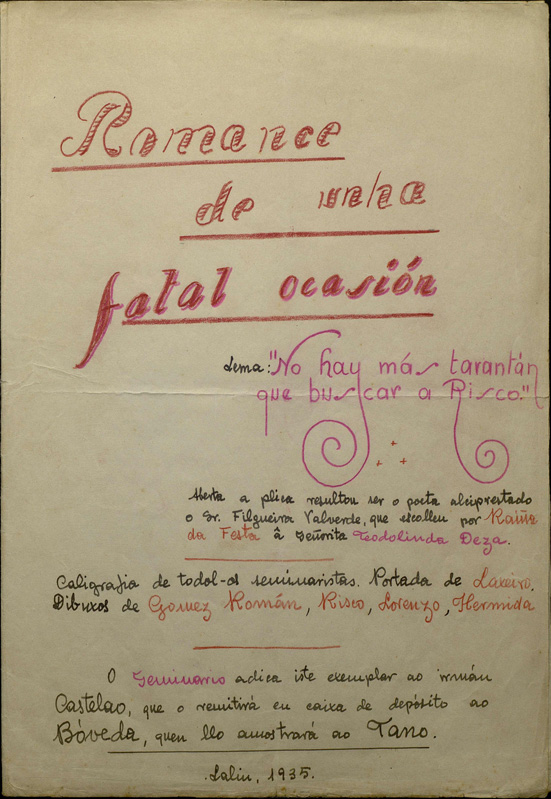 Romance
de unha
fatal ocasión
Lema: "No hay más tarantán
que buscar a Risco."
Aberta a plica resultou ser o poeta alciprestado
o Sr. Filgueira Valverde, que escolleu por Raíña
da Festa â señorita Teodolinda Deza.
Caligrafia de todol-os seminaristas. Portada de Laxeiro.
Dibuxos de Gomez Román, Risco, Lorenzo, Hermida
O Seminario adica iste exemplar ao irmán
Castelao, que o remitirá en caixa de depósito ao
Bóveda, quen llo amostrará ao Tano.
Lalin, 1935.